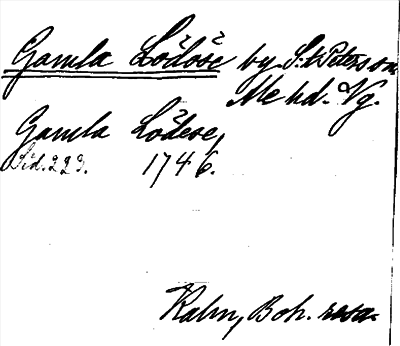 Gamla Lödöse by. S:t Peders sn
Ale hd. Vg.
Gamla Lödese,
Sid. 223. 1746.
Kalm, Boh. resa.